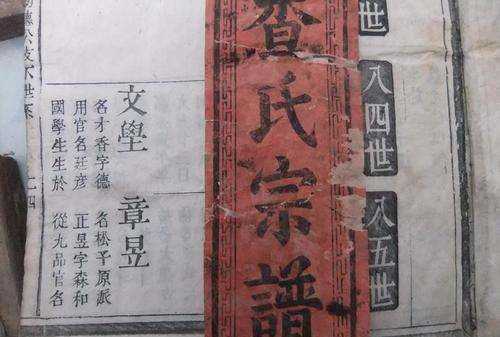 世
八四世
八五世
查氏宗譜
文學
名才香字德
用官名廷彥
國學生生於
章昱
名松平原
正昱字森和
從九品官名
德公支下世系
二四